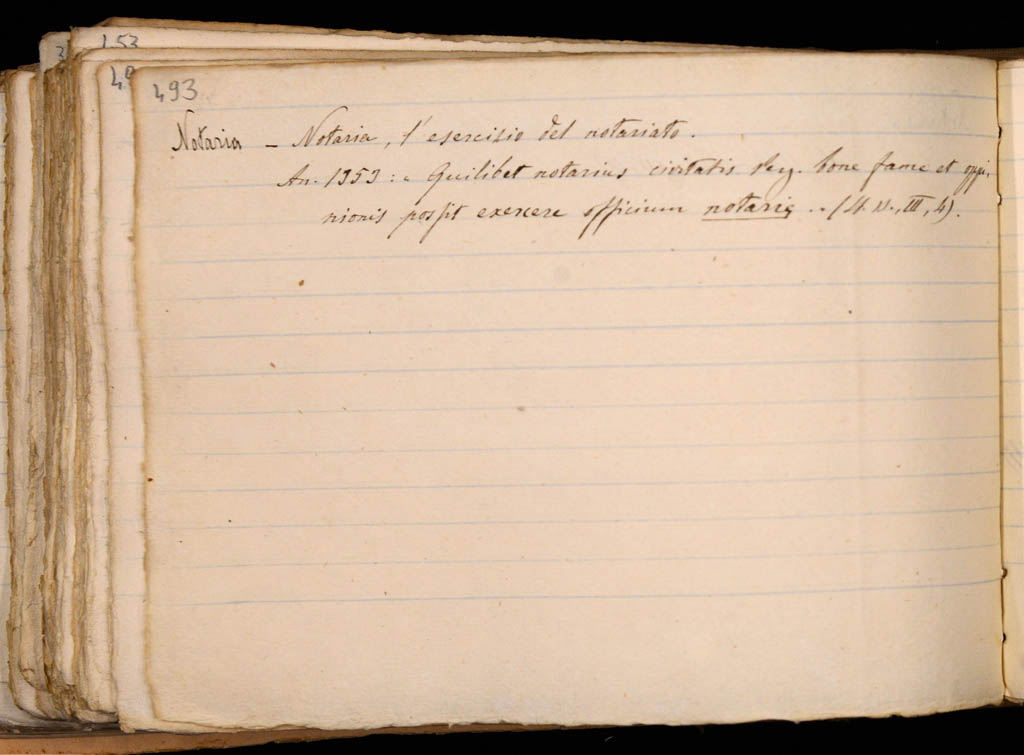 153
493
Notaria – Notaria, l'esercizio del notariato.
An. 1353: « Quilibet notarius civitatis Reg. bone fame et oppi-
nionis possit exercere officium notarie » (St. N., III, 4).